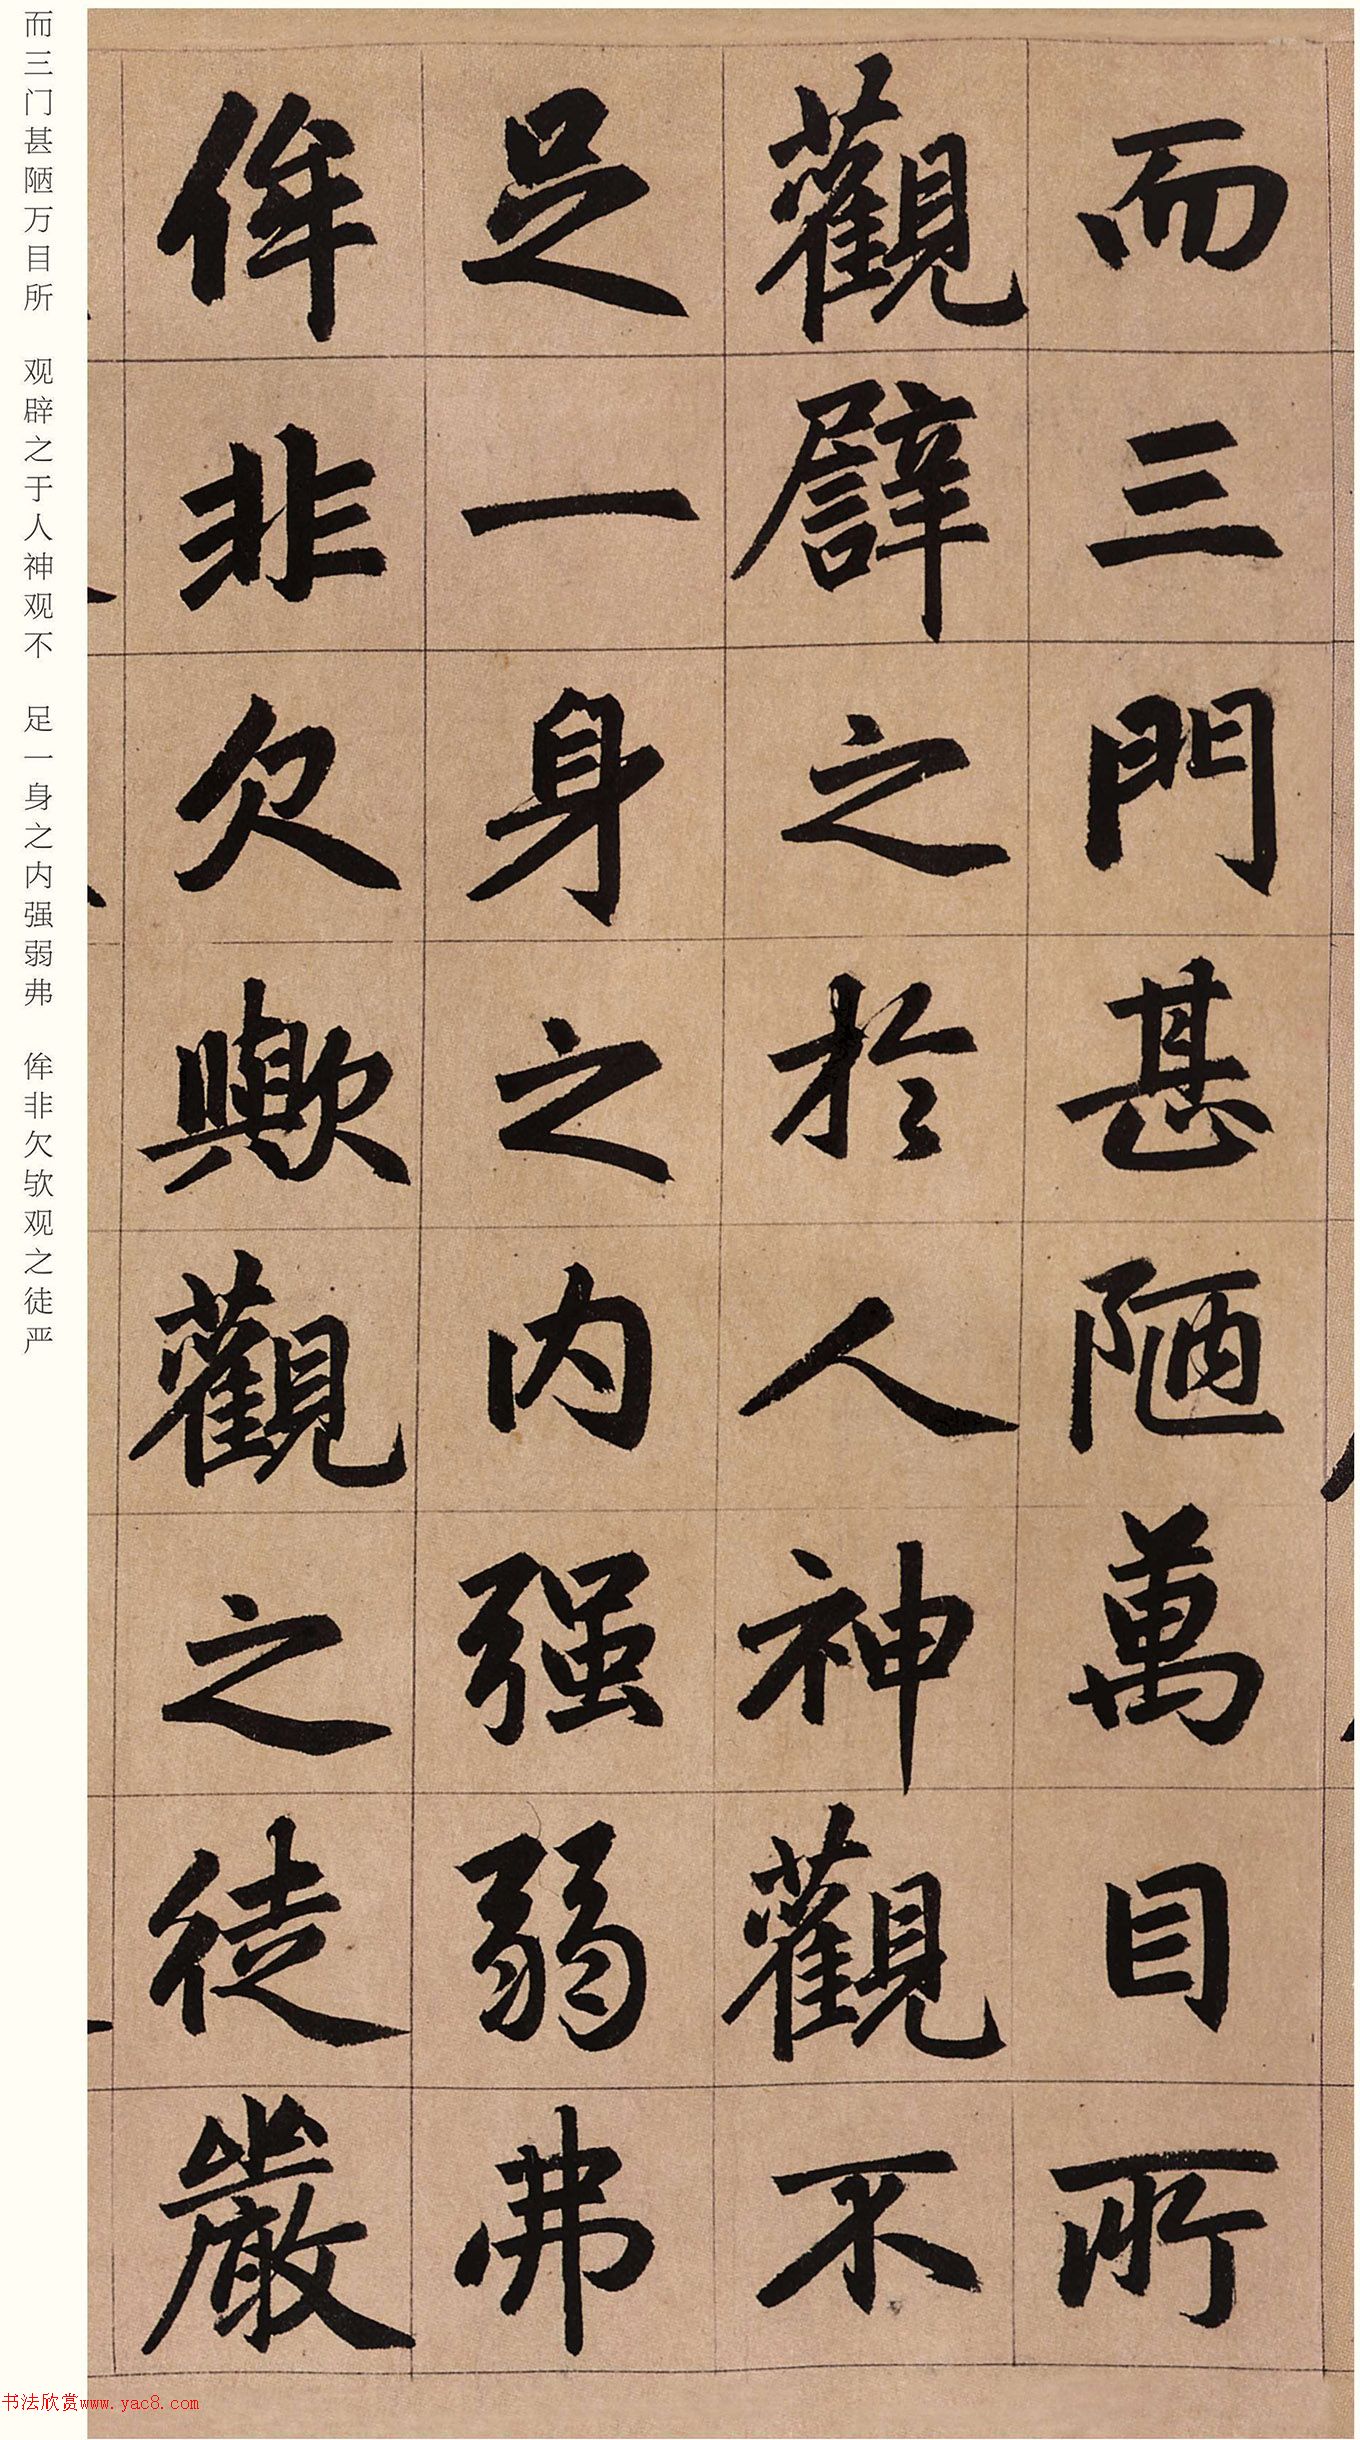 而三門甚陋萬目所
觀譬之於人神觀不
足一身之内强弱弗
侔非欠歟觀之徒嚴
而三门甚陋万目所 观辟之于人神观不 足一身之内强弱弗 侔非欠欤观之徒严
书法欣赏www.yac8.com